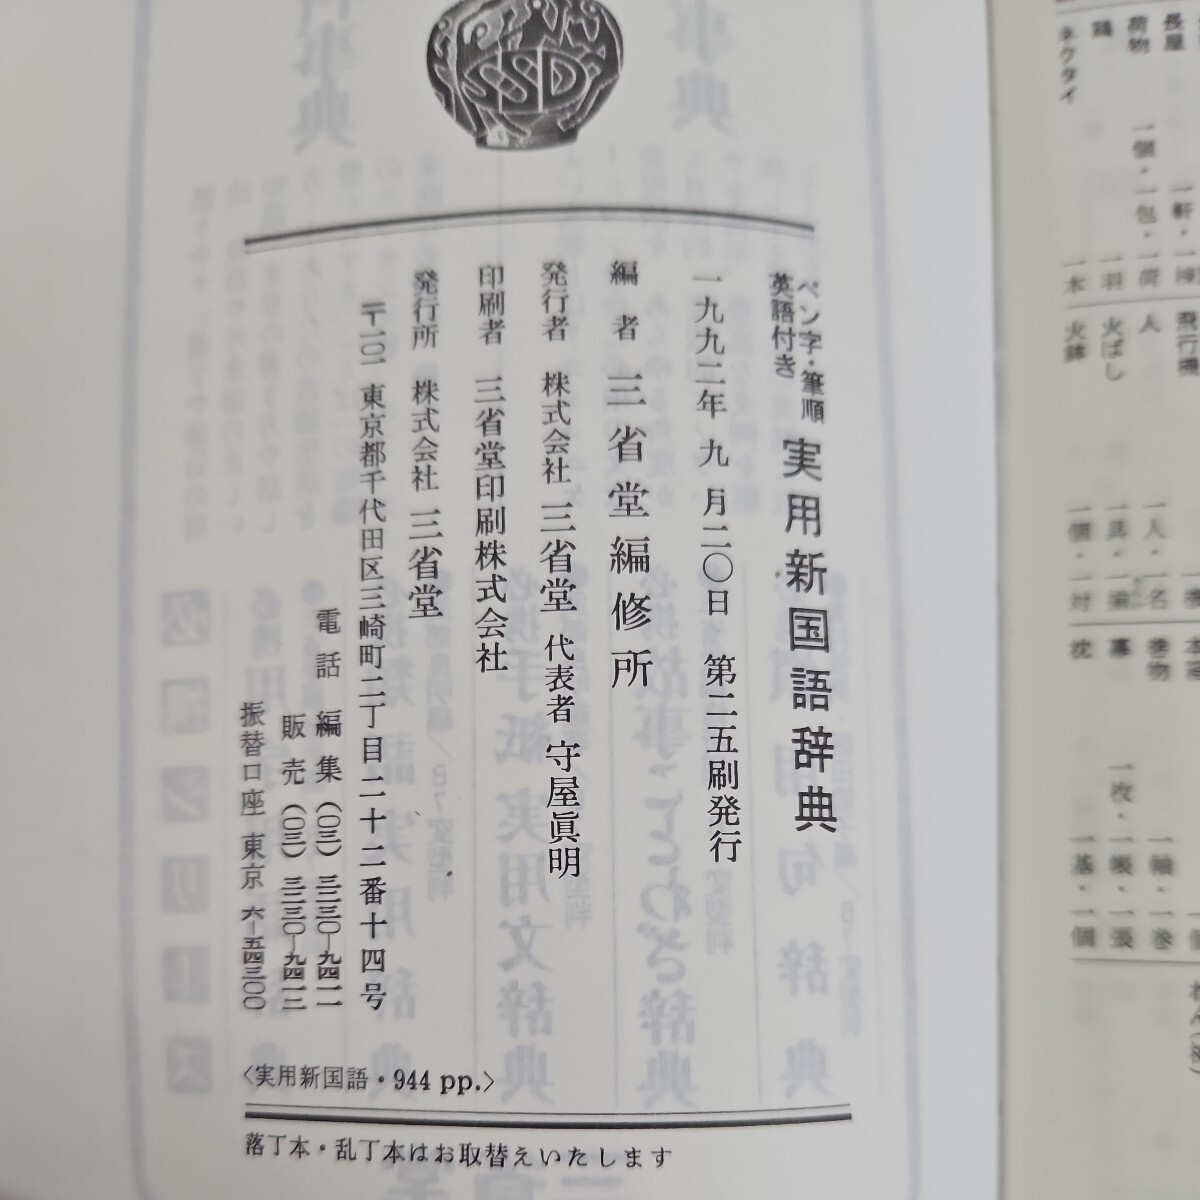 SSD
ペン字・筆順
英語付き
実用新国語辞典
一九九二年九月二〇日 第二五刷発行
編者 三省堂編修所
発行者 株式会社三省堂 代表者 守屋眞明
印刷者 三省堂印刷株式会社
発行所 株式会社三省堂
〒一〇一 東京都千代田区三崎町二丁目二十二番十四号
電話 編集(〇三)三二三〇―九四一一
販売(〇三)三二三〇―九四一二
振替口座 東京 六―五四三〇〇
〈実用新国語・944 pp.〉
落丁本・乱丁本はお取替えいたします
長屋 一軒・一棟
荷物 一個・一包・一荷
鶏 一羽
ネクタイ 一本
飛行機
人 一人・一名
火ばし 一具・一揃
火鉢 一個・一対
巻物 一軸・一巻
幕 一枚・一帳・一張
枕 一基・一個